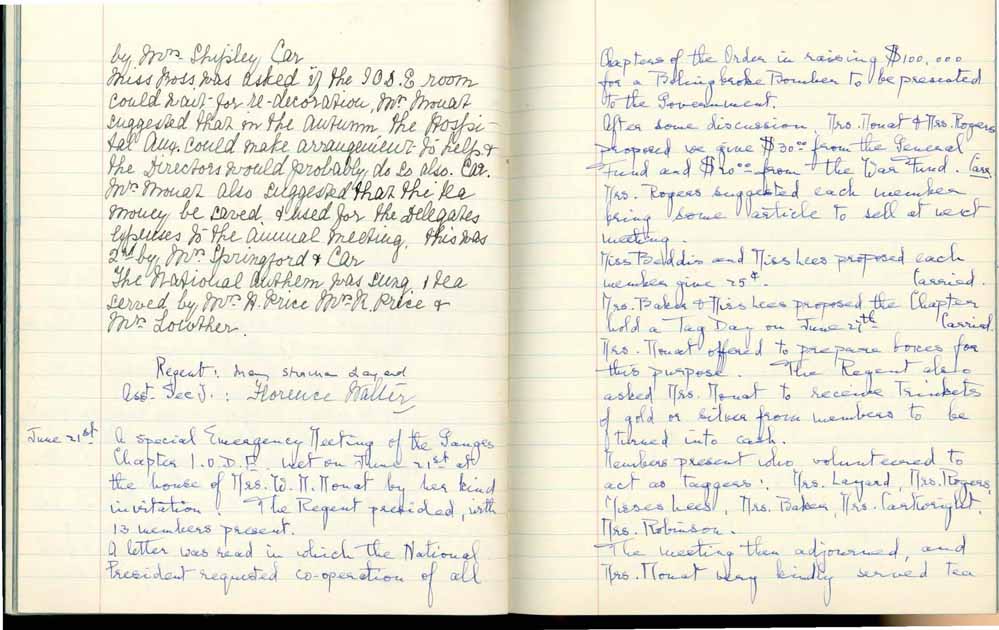 by Mrs. Shipley Car
Miss Moss was asked if the I O D. E room
could wait for re-decoration, Mrs Mouat
suggested that in the Autumn the Hospi-
tal Aux. could make arrangement to help &
the Directors would probably do so also. Car.
Mrs Mouat also suggested that the tea
money be saved, & used for the Delegates
expenses to the annual meeting. This was
2nd by Mrs Springford & Car
The National Anthem was sung, & tea
served by Mrs A. Price Mrs R. Price &
Mrs Lowther.
Regent: Layard
Asst. Secy. : Florence Walter
June 21st A special Emergency Meeting of the Ganges
Chapter I.O.D.E. met on June 21st at
the house of Mrs. W. M. Mouat by her kind
invitation. The Regent presided, with
13 members present.
A letter was read in which the National
President requested co-operation of all
Chapters of the Order in raising $100,000
for a Bolingbroke Bomber to be presented
to the Government.
After some discussion, Mrs. Mouat & Mrs. Rogers
proposed we give $30.00 from the General
Fund and from the War Fund. Carr.
Mrs. Rogers suggested each member
bring some article to sell at next
meeting.
Miss Beddis and Miss Lees proposed each
member give 25¢. Carried.
Mrs. Baker & Miss Lees proposed the Chapter
hold a Tag Day on June 27th Carried
Mrs. Mouat offered to prepare boxes for
this purpose. The Regent also
asked Mrs. Mouat to receive Trinkets
of gold or silver from members to be
turned into cash.
Members present who volunteered to
act as taggers: Mrs. Layard, Mrs. Rogers,
Misses Lees, Mrs. Baker, Mrs. Cartwright,
Mrs. Robinson.
The meeting then adjourned, and
Mrs. Mouat very kindly served tea